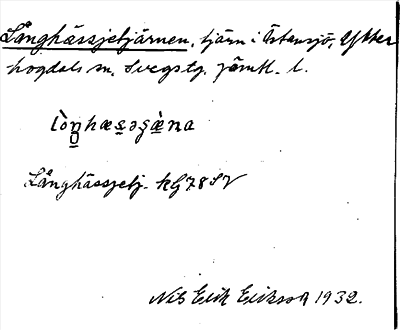 Långhässjetjärnen, tjärn i Östansjö, Ytter
hogdals sn, Svegs tg. Jämtl. l.
Långhässjetj. kG78SV
Nils Erik Erikson 1932.